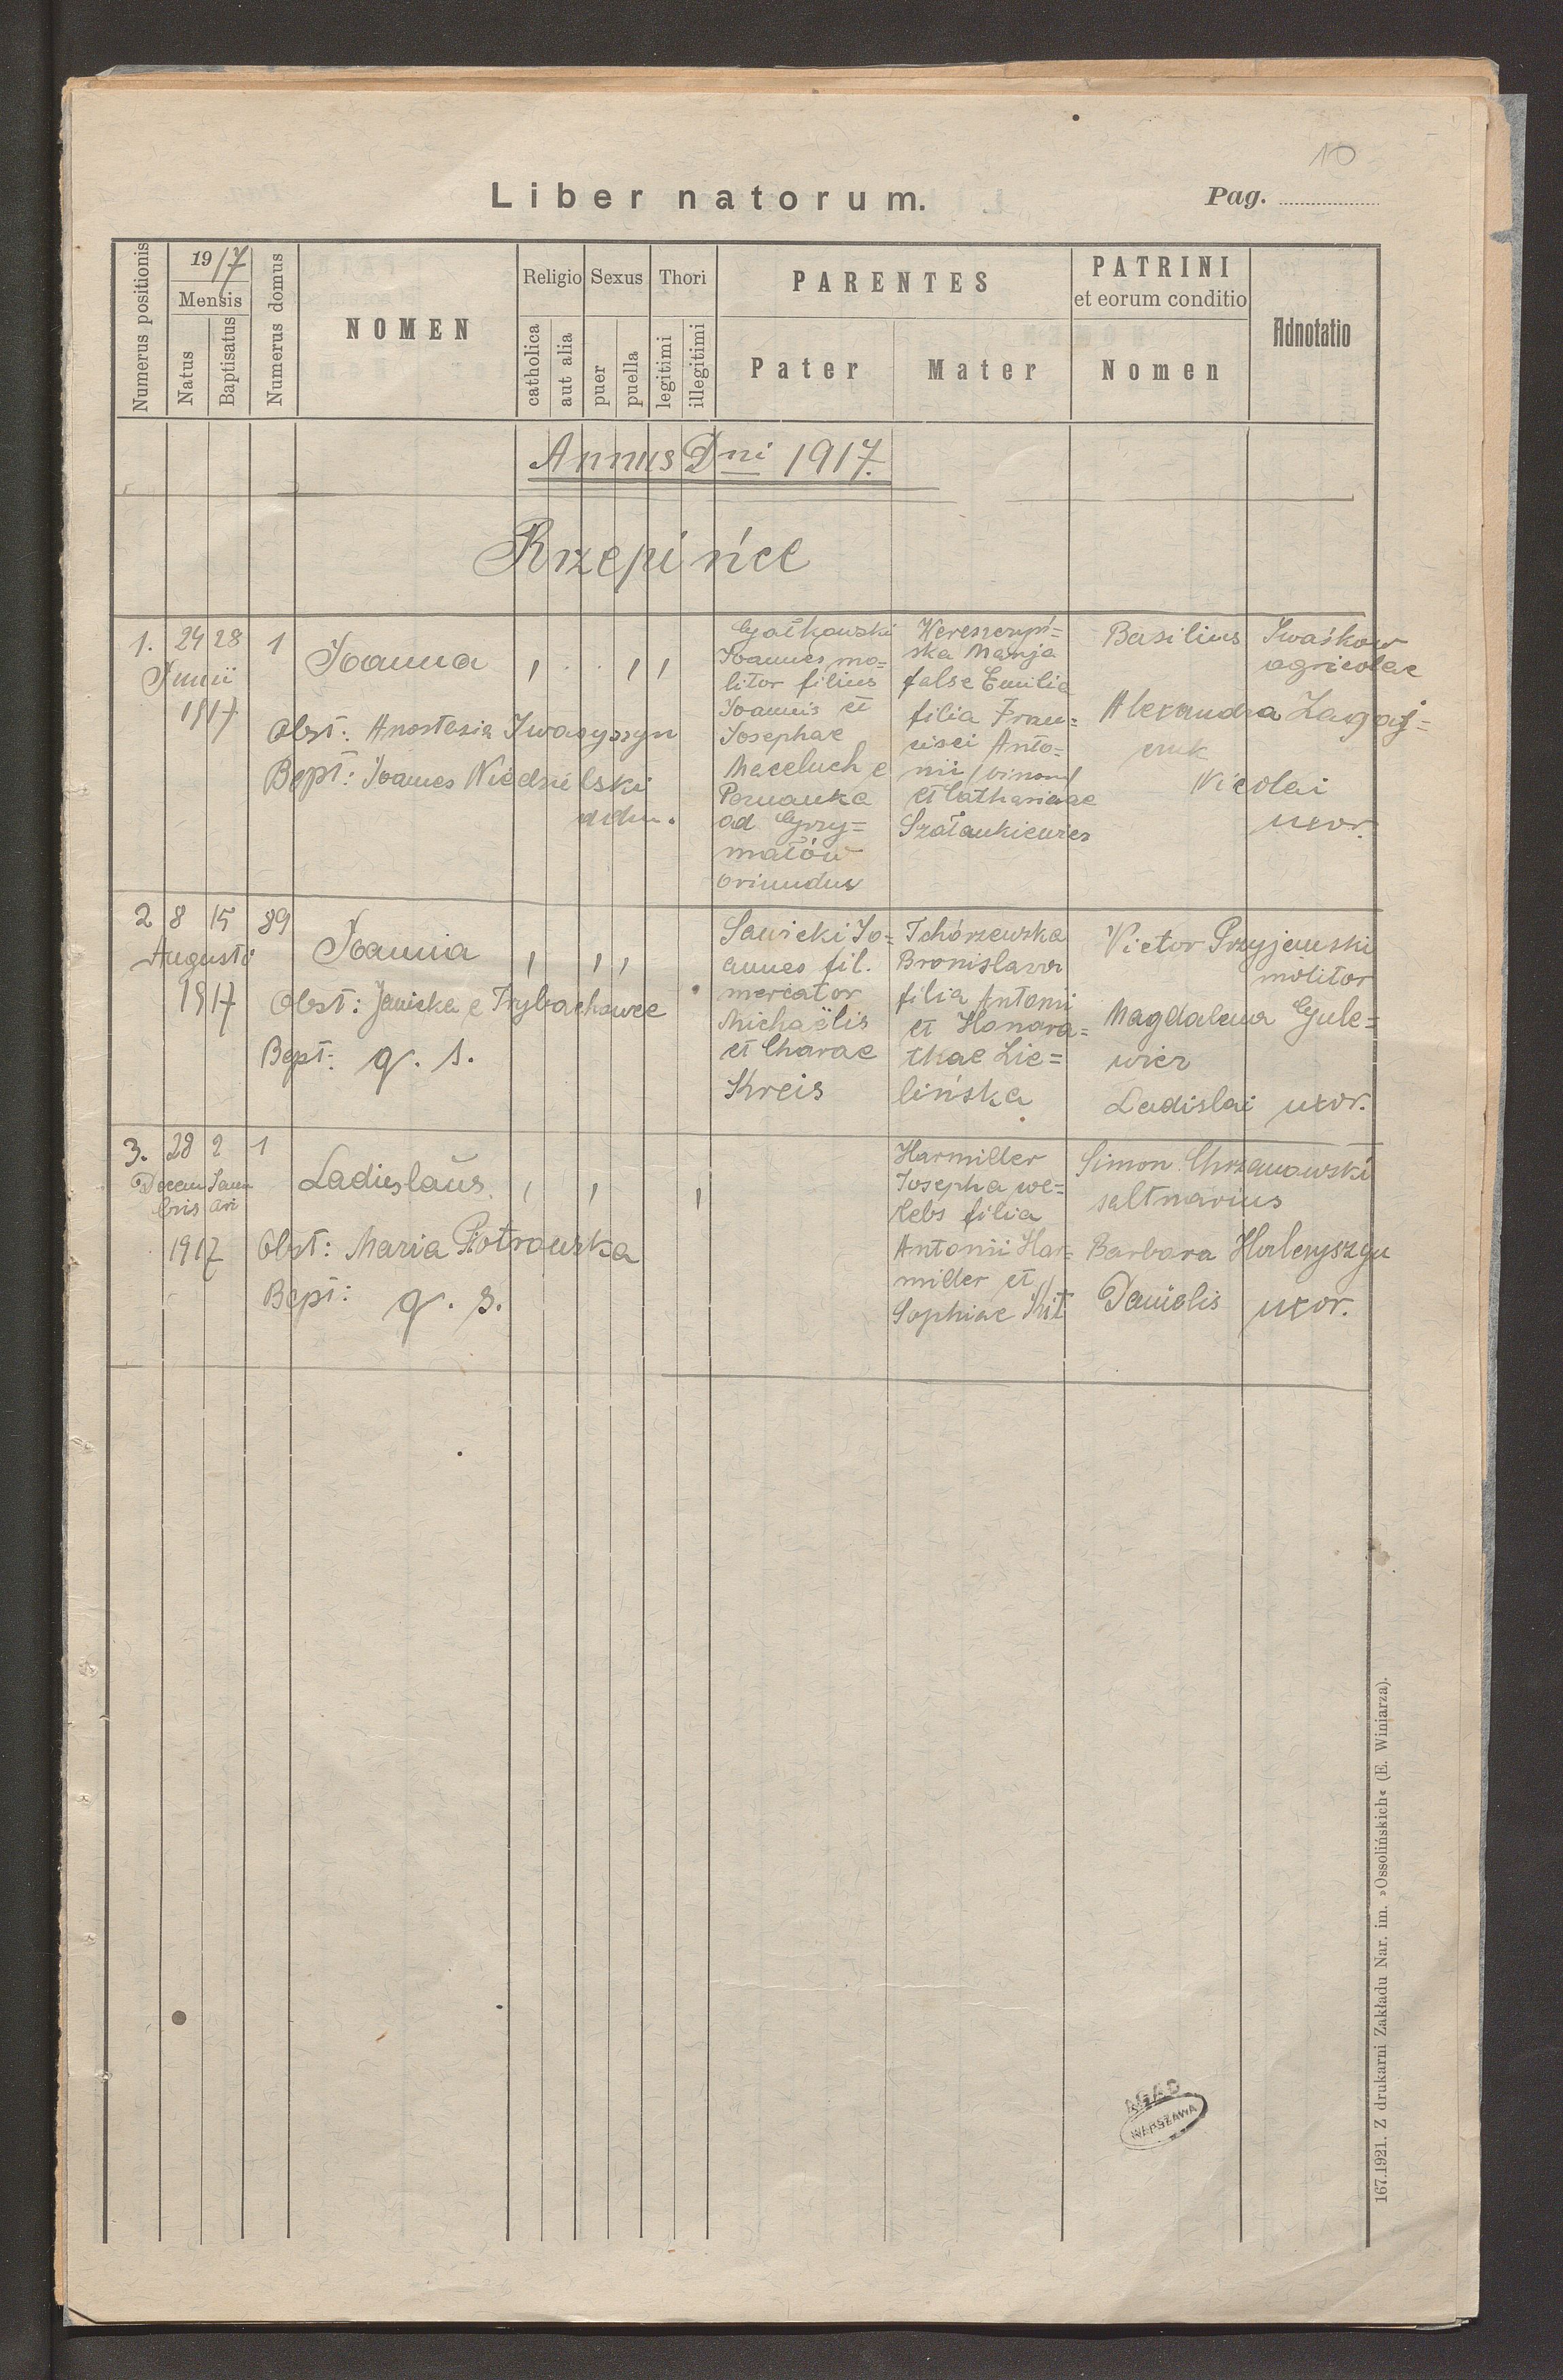 10
Liber natorum.
Pag.
Numerus positionis
1917
Mensis
Natus
Baptisatus
Numerus domus
NOMEN
Religio
catholica
aut alia
Sexus
puer
puella
Thori
legitimi
illegitimi
PARENTES
Pater
Mater
PATRINI
et eorum conditio
Nomen
Adnotatio
Annus Dni 1917.
Rzepińce
1. 24 28 1
Junii
1917
Joanna
Obst: Anastasia Iwasyszyn
Bapt: Joannes Niedzielski
Gałkowski
Joannes mo=
litor filius
Joannis et
Josephae
Maceluch e
Poznanka
ad Grzy=
małów
oriundus
Wereszczyń=
ska Marija
false Emilia
filia Fran=
cisci Anto=
nii /binom/
et Catharinae
Szałankiewicz
Basilius Iwaśkow
agricolae
Alexandra Zagaj=
czuk
Nicolai
uxor.
2 8 15 89
Augusti
1917
Joannia
Obst: Janicka e Trybuchowce
Bapt: q. s.
Sawicki Jo=
annes fil.
mercator
Michaëlis
et Charae
Kreis
Tchórzewska
Bronislava
filia Antonii
et Honora=
thae Zie=
lińska
Victor Przyjemski
molitor
Magdalena Gule=
wicz
Ladislai uxor.
3. 28 2 1
Decem Janu
bris ari
1917
Ladislaus
Obst: Maria Piotrowska
Bapt: q. s.
Harmiller
Josepha coe=
lebs filia
Antonii Har=
miller et
Sophiae Kit
Simon Chrzanowski
saltuarius
Barbara Holeryszyn
Danielis uxor.
AGAD
WARSZAWA
167.1921. Z drukarni Zakładu Nar. im. »Ossolińskich« (E. Winiarza).